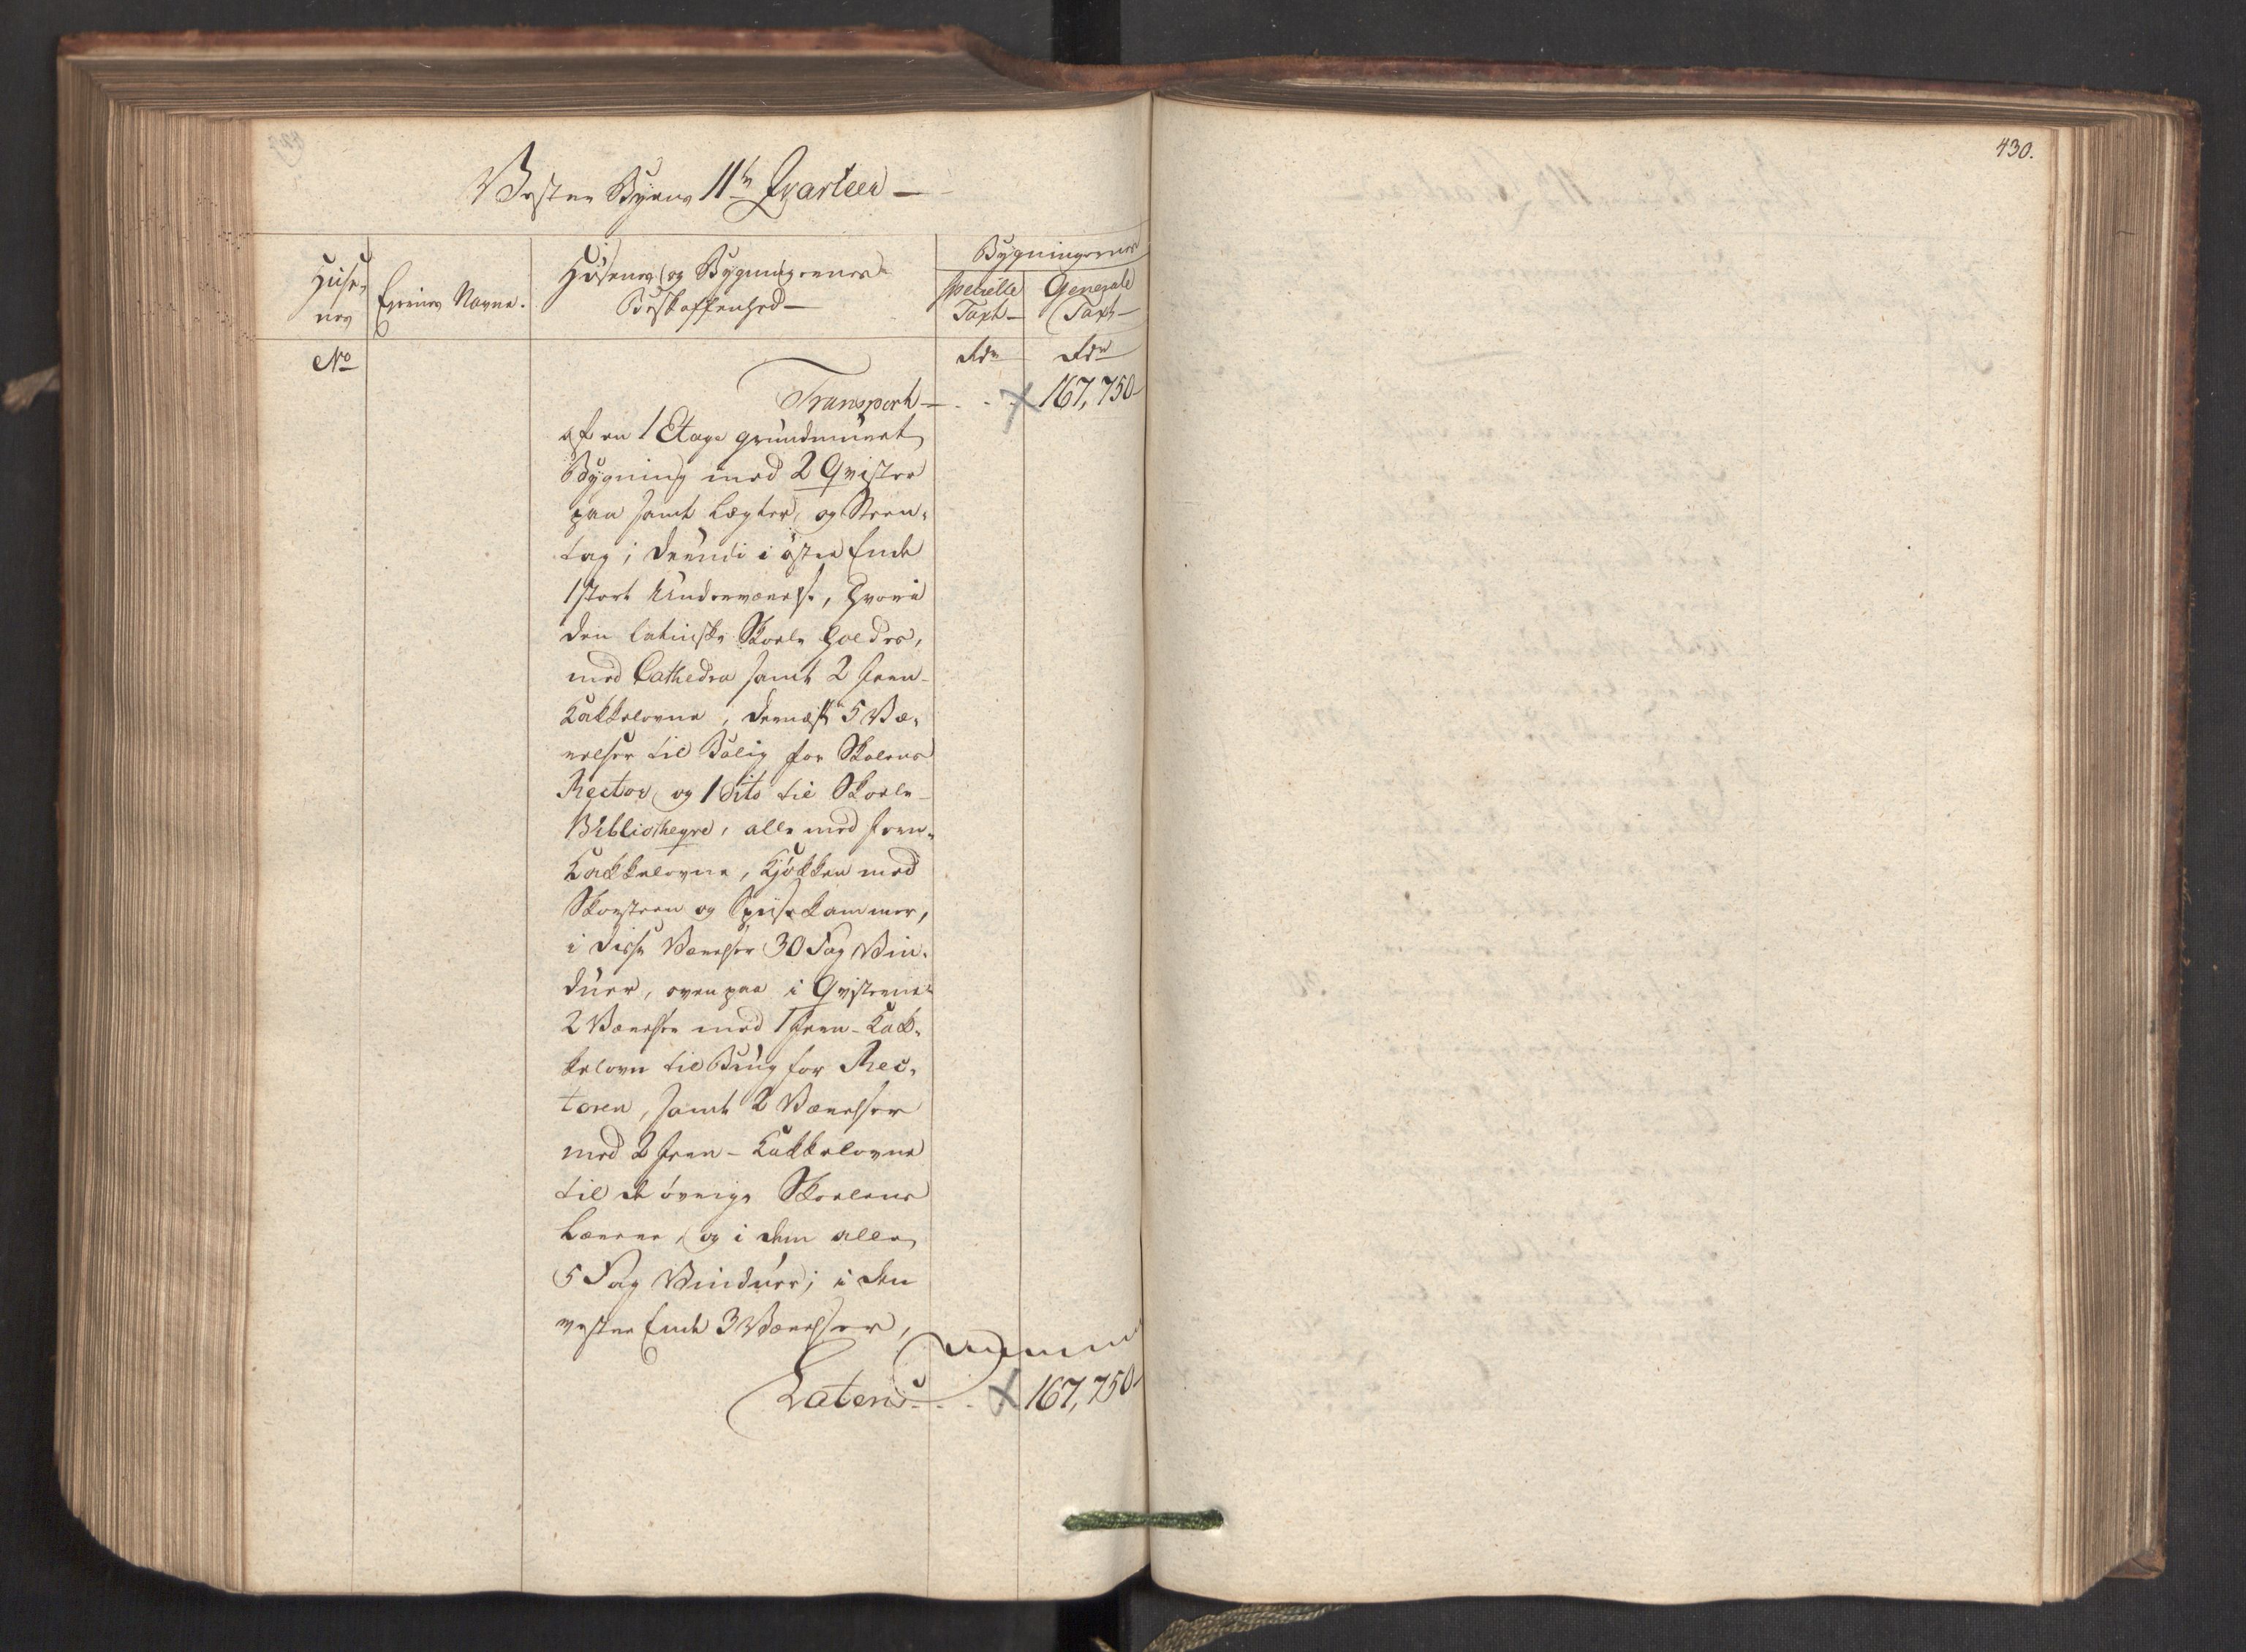 Vester Byens 11te Qvarteer
Huse-
nes
Eyernes Navne.
Huusenes og Bygningernes
Beskaffenhed
Bygningernes
specielle
Taxt
Generale
Taxt
No
Rdr
Rdr
Transport 167,750
af en 1 Etage grundmuret
Bygning med 2 Qvister
paa samt Legter og Steen-
tag; deruudi i øster Ende
1 stort Underværelse, hvori
den latinske Skoele holdes,
med Cathedra samt 2 Jern
Kakkelovne, dernæst 5 Væ-
relser til Bolig for Skolens
Rector og 1 dito til Skoele
Bibliotheqve, alle med Jern-
Kakkelovne, Kjøkken med
Skorsteen og Spiisekammer,
i disse Værelser 30 Fag Vin-
duer, ovenpaa i Qvisterne
2 Værelser med 1 Jern-Kak-
kelovn til Brug for Rec-
toren, samt 2 Værelser
med 2 Jern-Kakkelovne
til de øvrige Skoelens
Lærere, og i dem alle
5 Fag Vinduer; i den
vester Ende 3 Værelser,
Lateris 167,750
430.